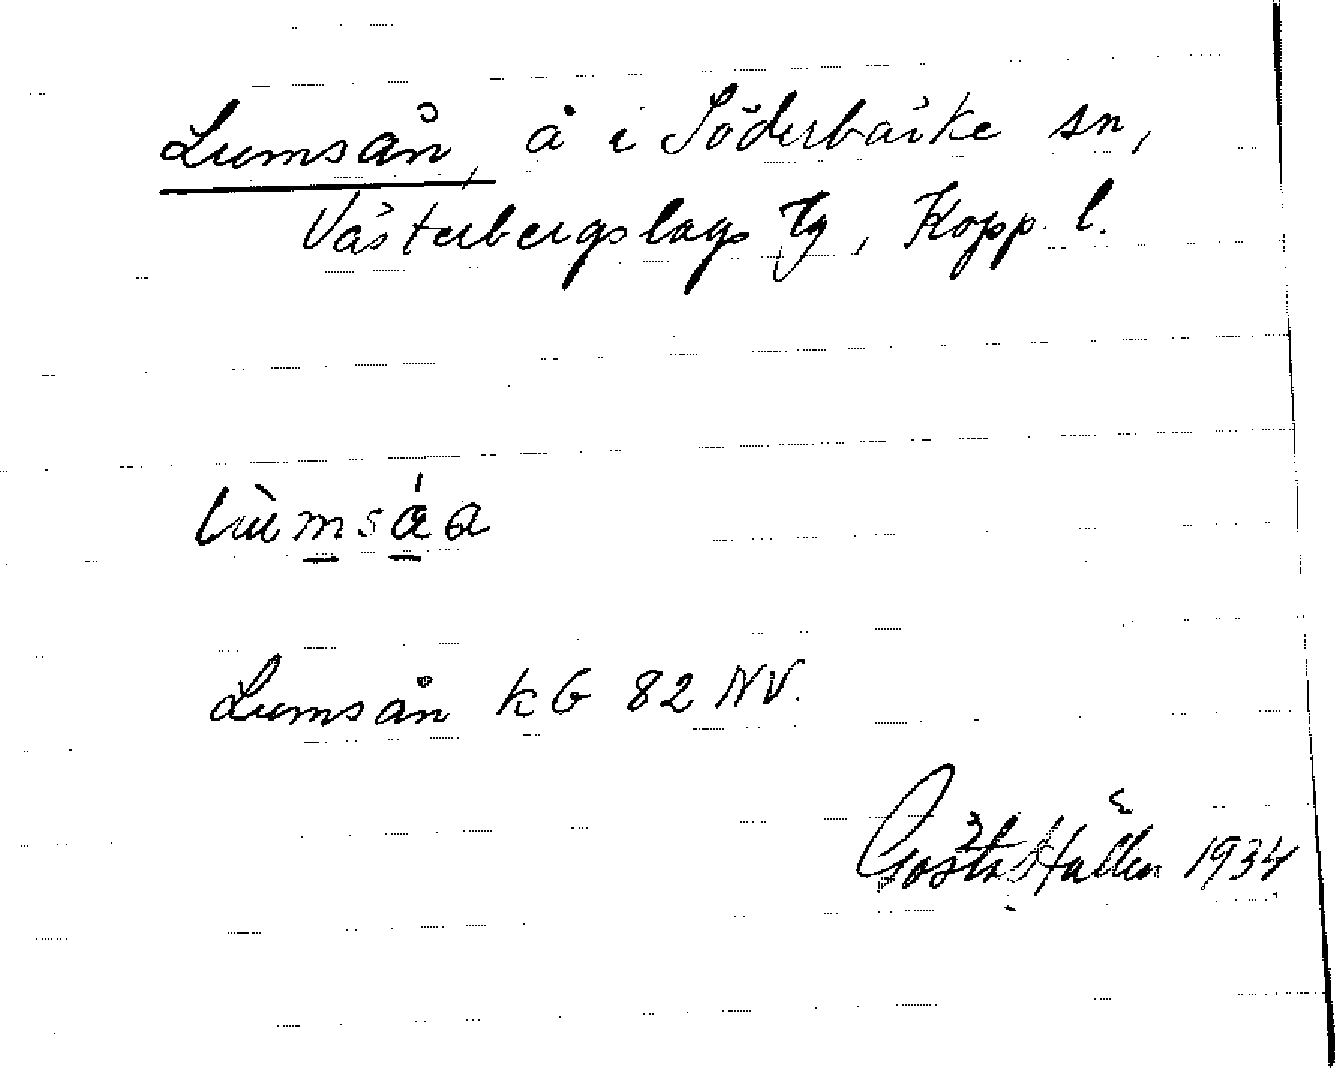 Lumsån, å i Söderbärke sn,
Västerbergslags tg, Kopp. l.
lùmsáa
Lumsån kG 82 NV.
Gösta Hallén 1934